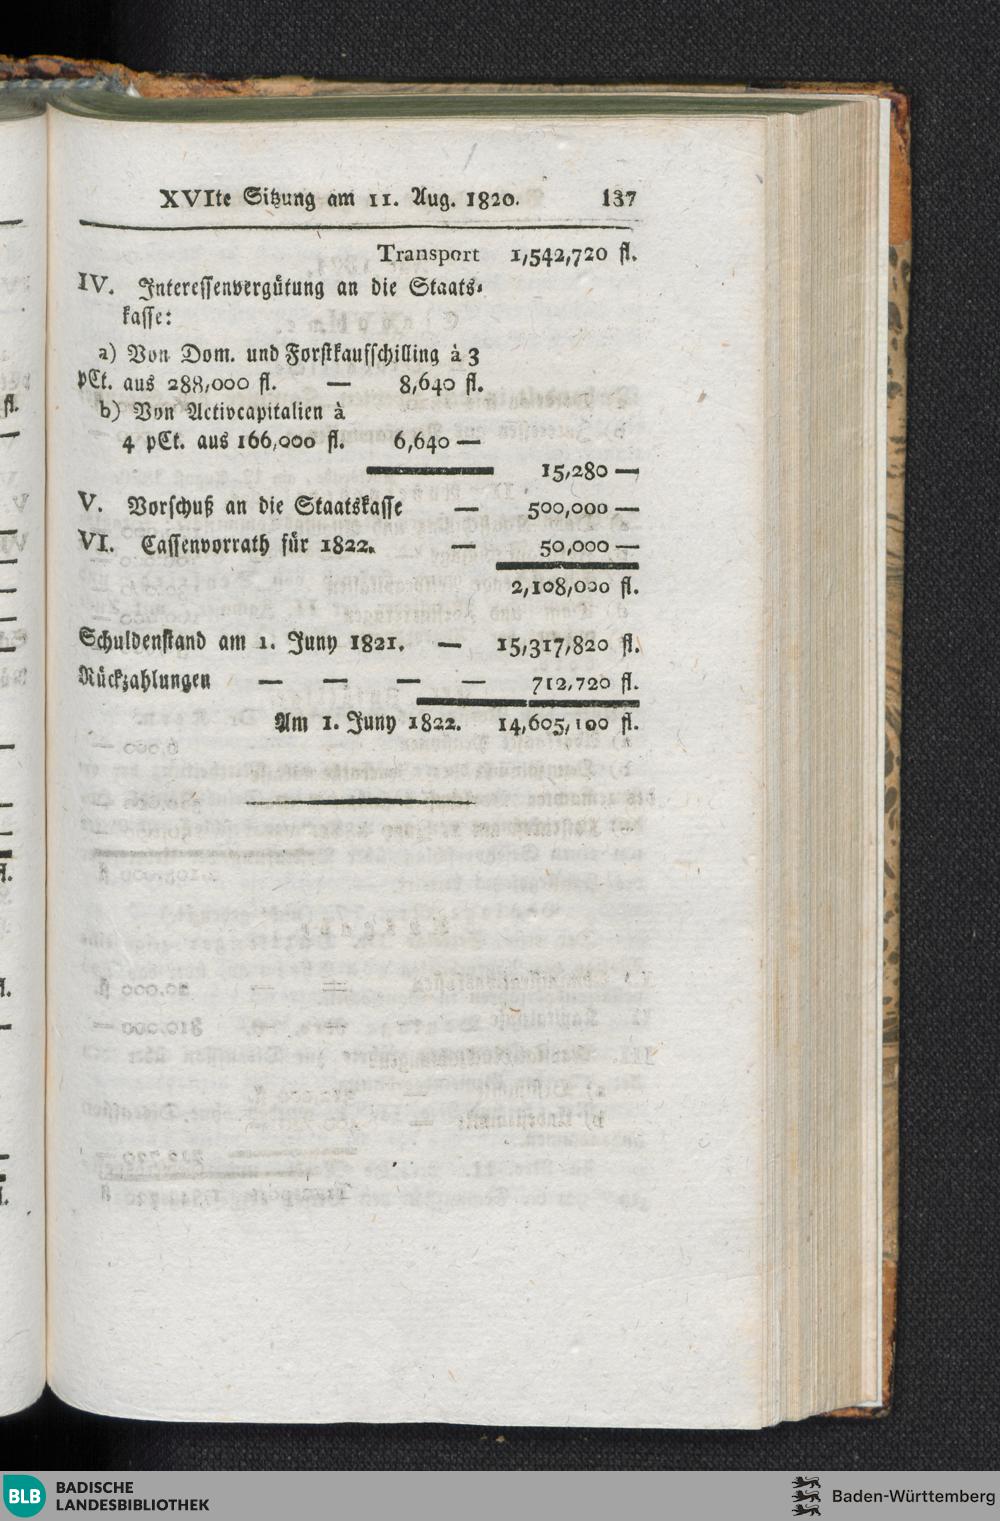 XVIte Sitzung am 11. Aug. 1820. 137
Transport 1,542,720 fl.
IV. Interessenvergütung an die Staats-
kasse:
a) Von Dom. und Forstkaufschilling à 3
pCt. aus 288,000 fl. — 8,640 fl.
b) Von Activcapitalien à
4 pCt. aus 166,000 fl. 6,640 —
15,280 —
V. Vorschuß an die Staatskasse — 500,000 —
VI. Cassenvorrath für 1822. — 50,000 —
2,108,000 fl.
Schuldenstand am 1. Juny 1821. — 15,317,820 fl.
Rückzahlungen — — — — 712,720 fl.
Am 1. Juny 1822. 14,605,100 fl.
BLB BADISCHE
LANDESBIBLIOTHEK
Baden-Württemberg